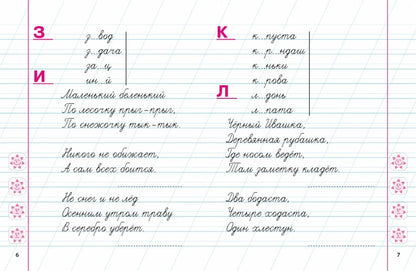 З
з..вод
з..дача
за..ц
ин..й
И
Маленький беленький
По лесочку прыг-прыг,
По снежочку тык-тык.
Никого не обижает,
А сам всех боится.
Не снег и не лёд
Осенним утром траву
В серебро уберёт.
6
К
к..пуста
к..р..ндаш
к..ньки
к..рова
Л
л..донь
л..пата
Чёрный Ивашка,
Деревянная рубашка,
Где носом ведёт,
Там заметку кладёт.
Два бодаста,
Четыре ходаста,
Один хлестун.
7